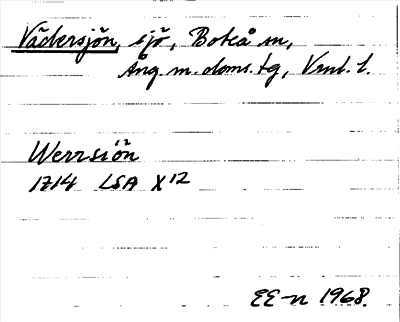 Vädersjön, sjö, Boteå sn,
Ång. m. doms. tg, Vrnl. l.
Werrsiön
1714 LSA X12
EE-n 1968.